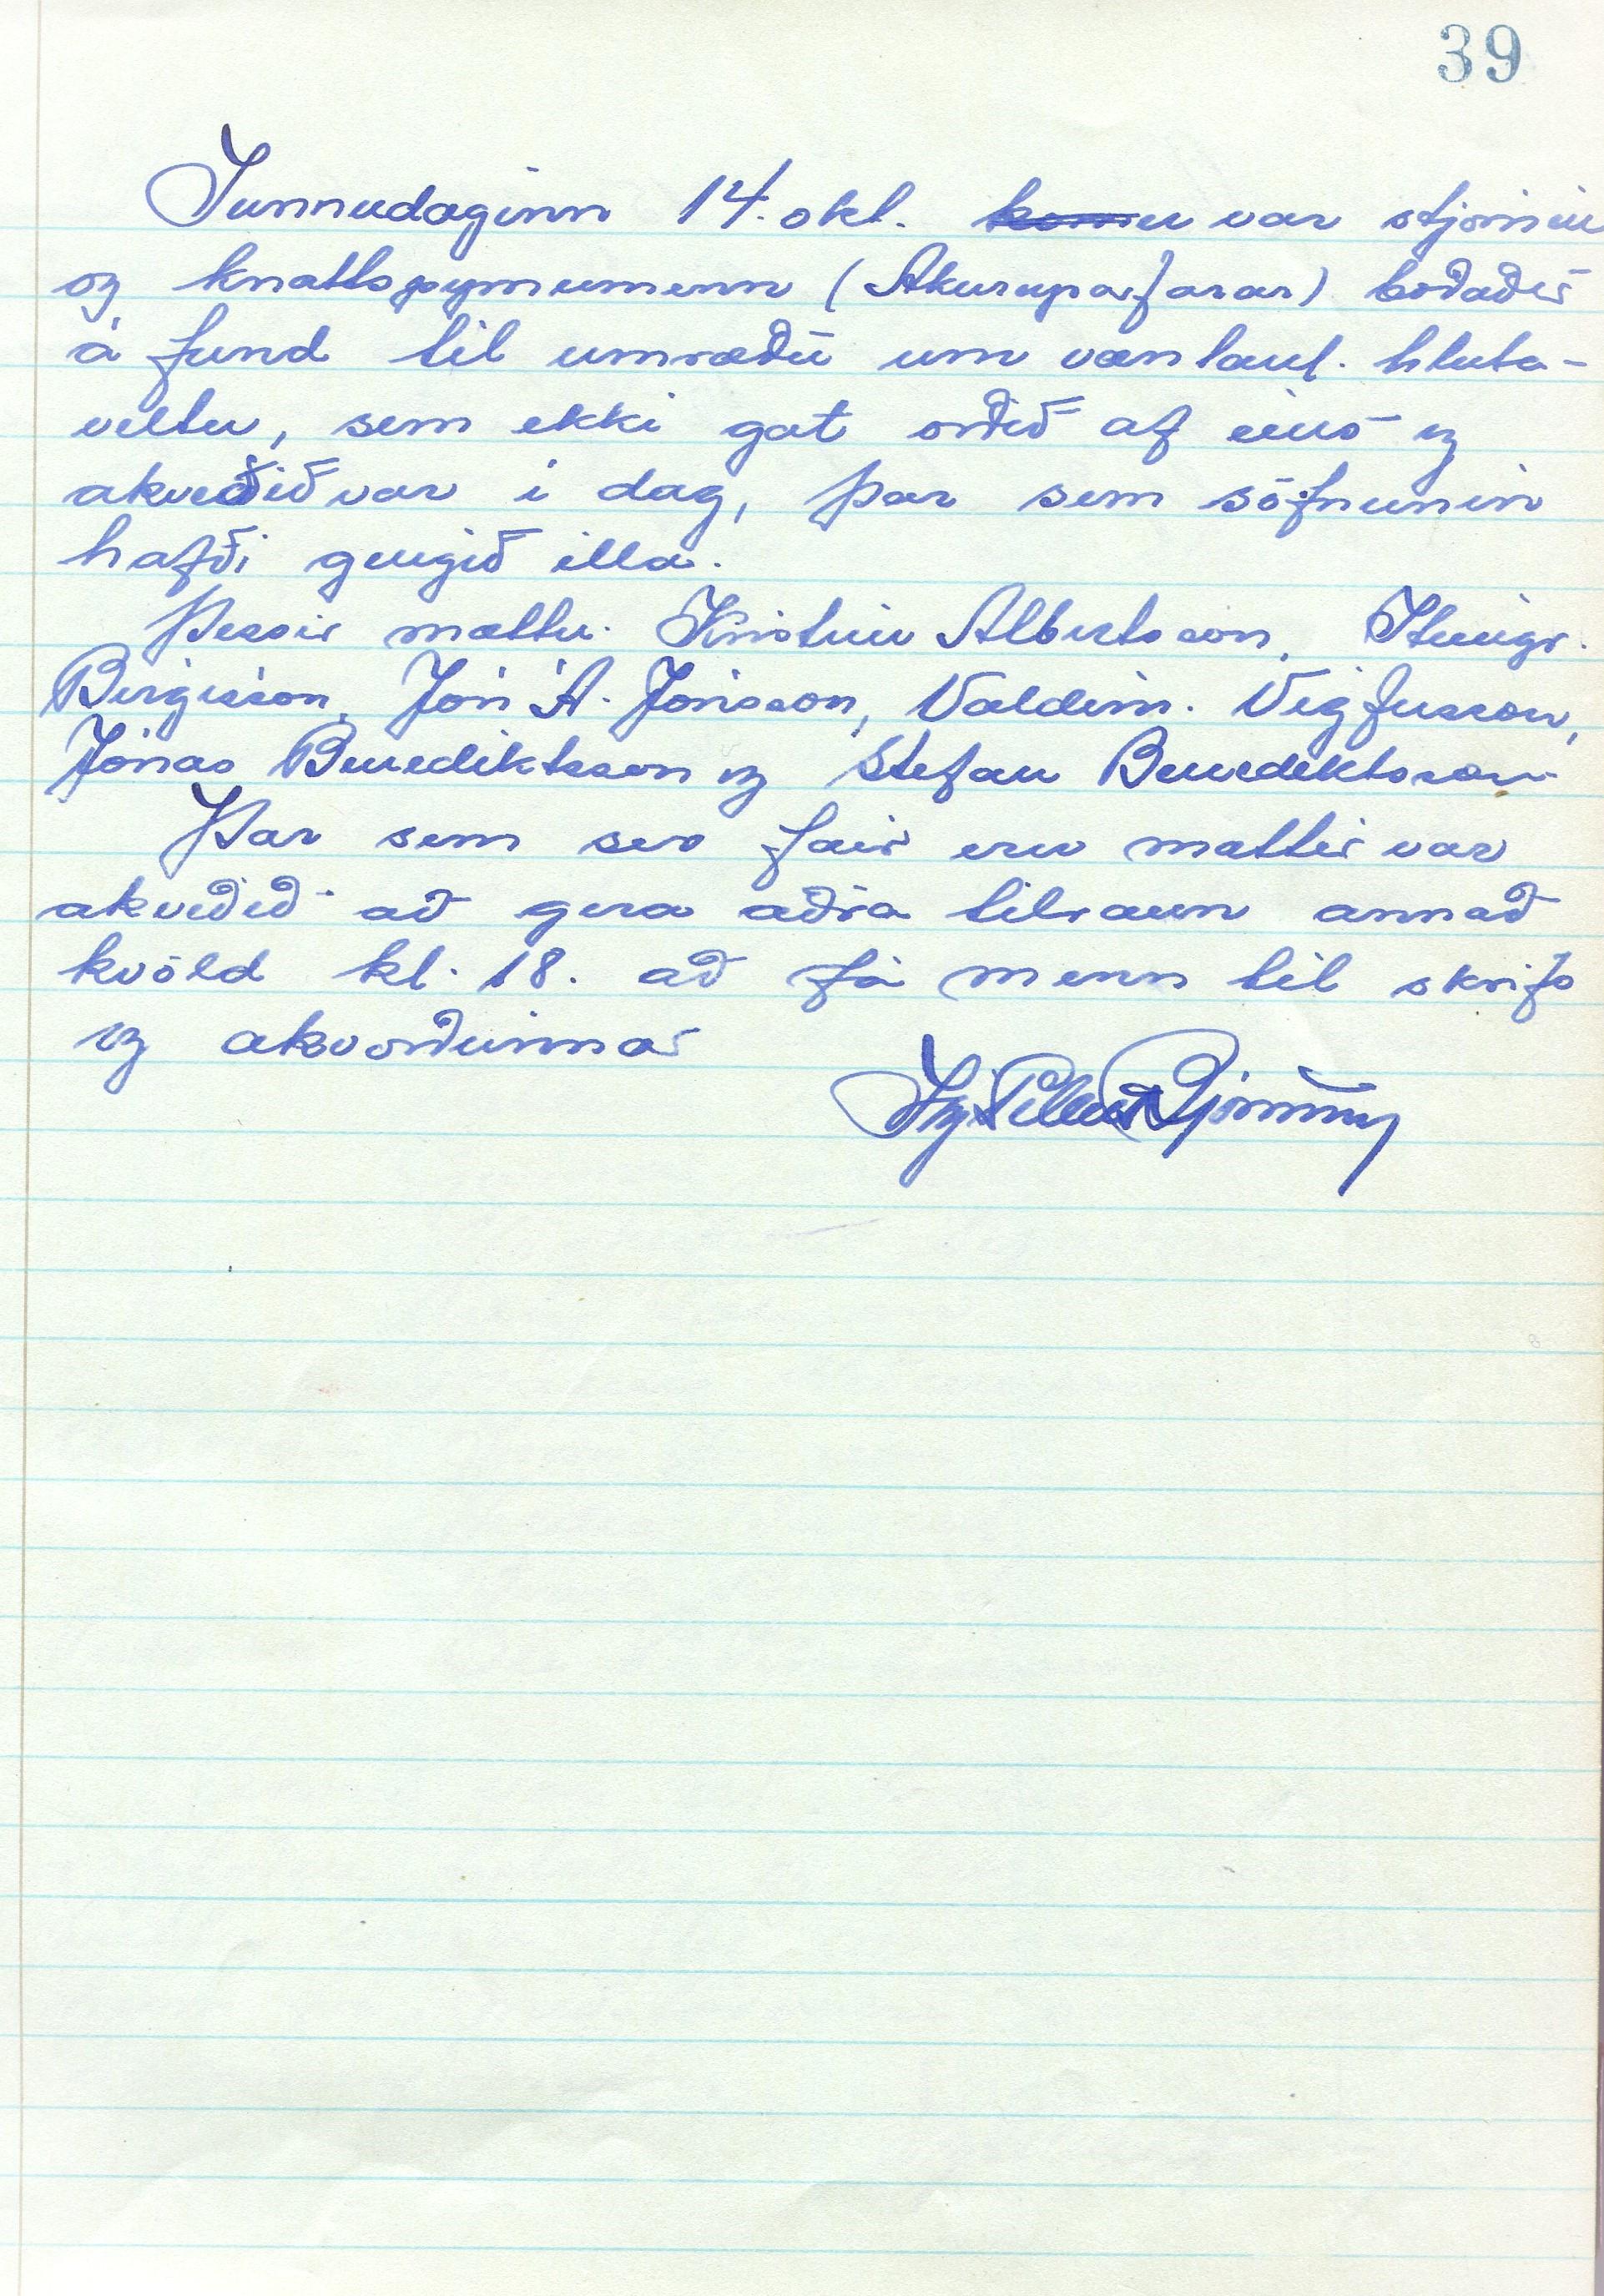 39
Sunnudaginn 14. okt. var stjórnin
og knattspyrnumenn (Akureyrarfarar) boðaðir
á fund til umræðu um væntanl. hluta-
veltu, sem ekki gat orðið af eins og
akveðið var í dag, þar sem söfnunin
hafði gengið illa.
Þessir mættu. Kristinn Albertsson, Steingr.
Birgisson, Jón Á. Jónsson, Valdim. Vigfusson,
Jónas Benediktsson og Stefan Benediktsson.
Þar sem svo fáir eru mættir var
akveðið að gera aðra tilraun annað
kvöld kl. 18. að fá menn til skrifs
og akvorðunnar